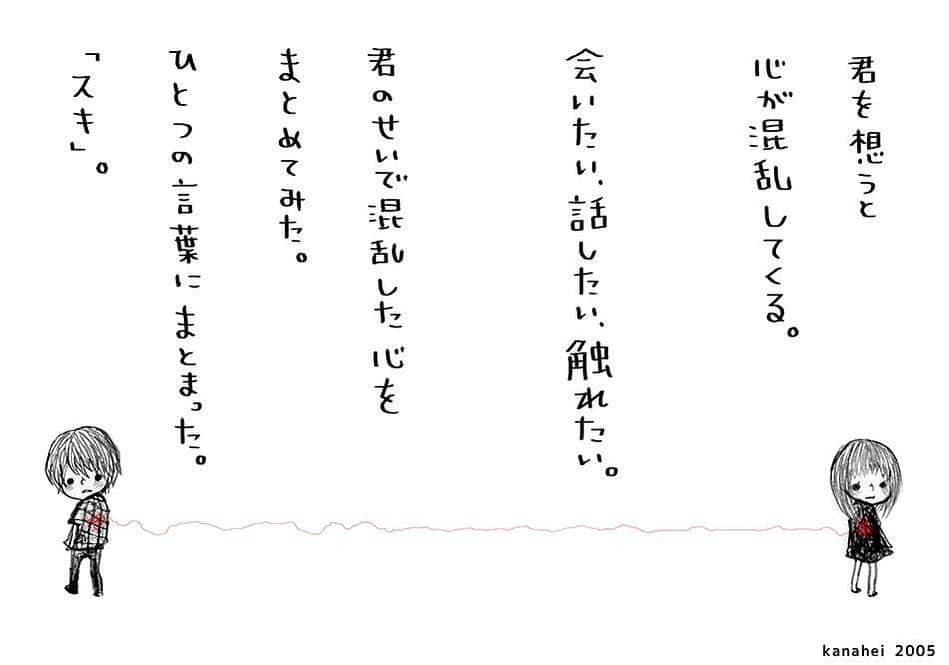 君を想うと
心が混乱してくる。
会いたい、話したい、触れたい。
君のせいで混乱した心を
まとめてみた。
ひとつの言葉にまとまった。
「スキ」。
kanahei 2005